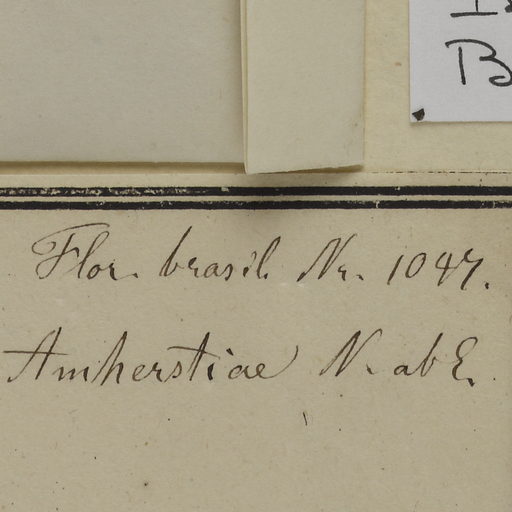 Flor. brasil. Nr. 1047.
Amherstiae N. ab E.